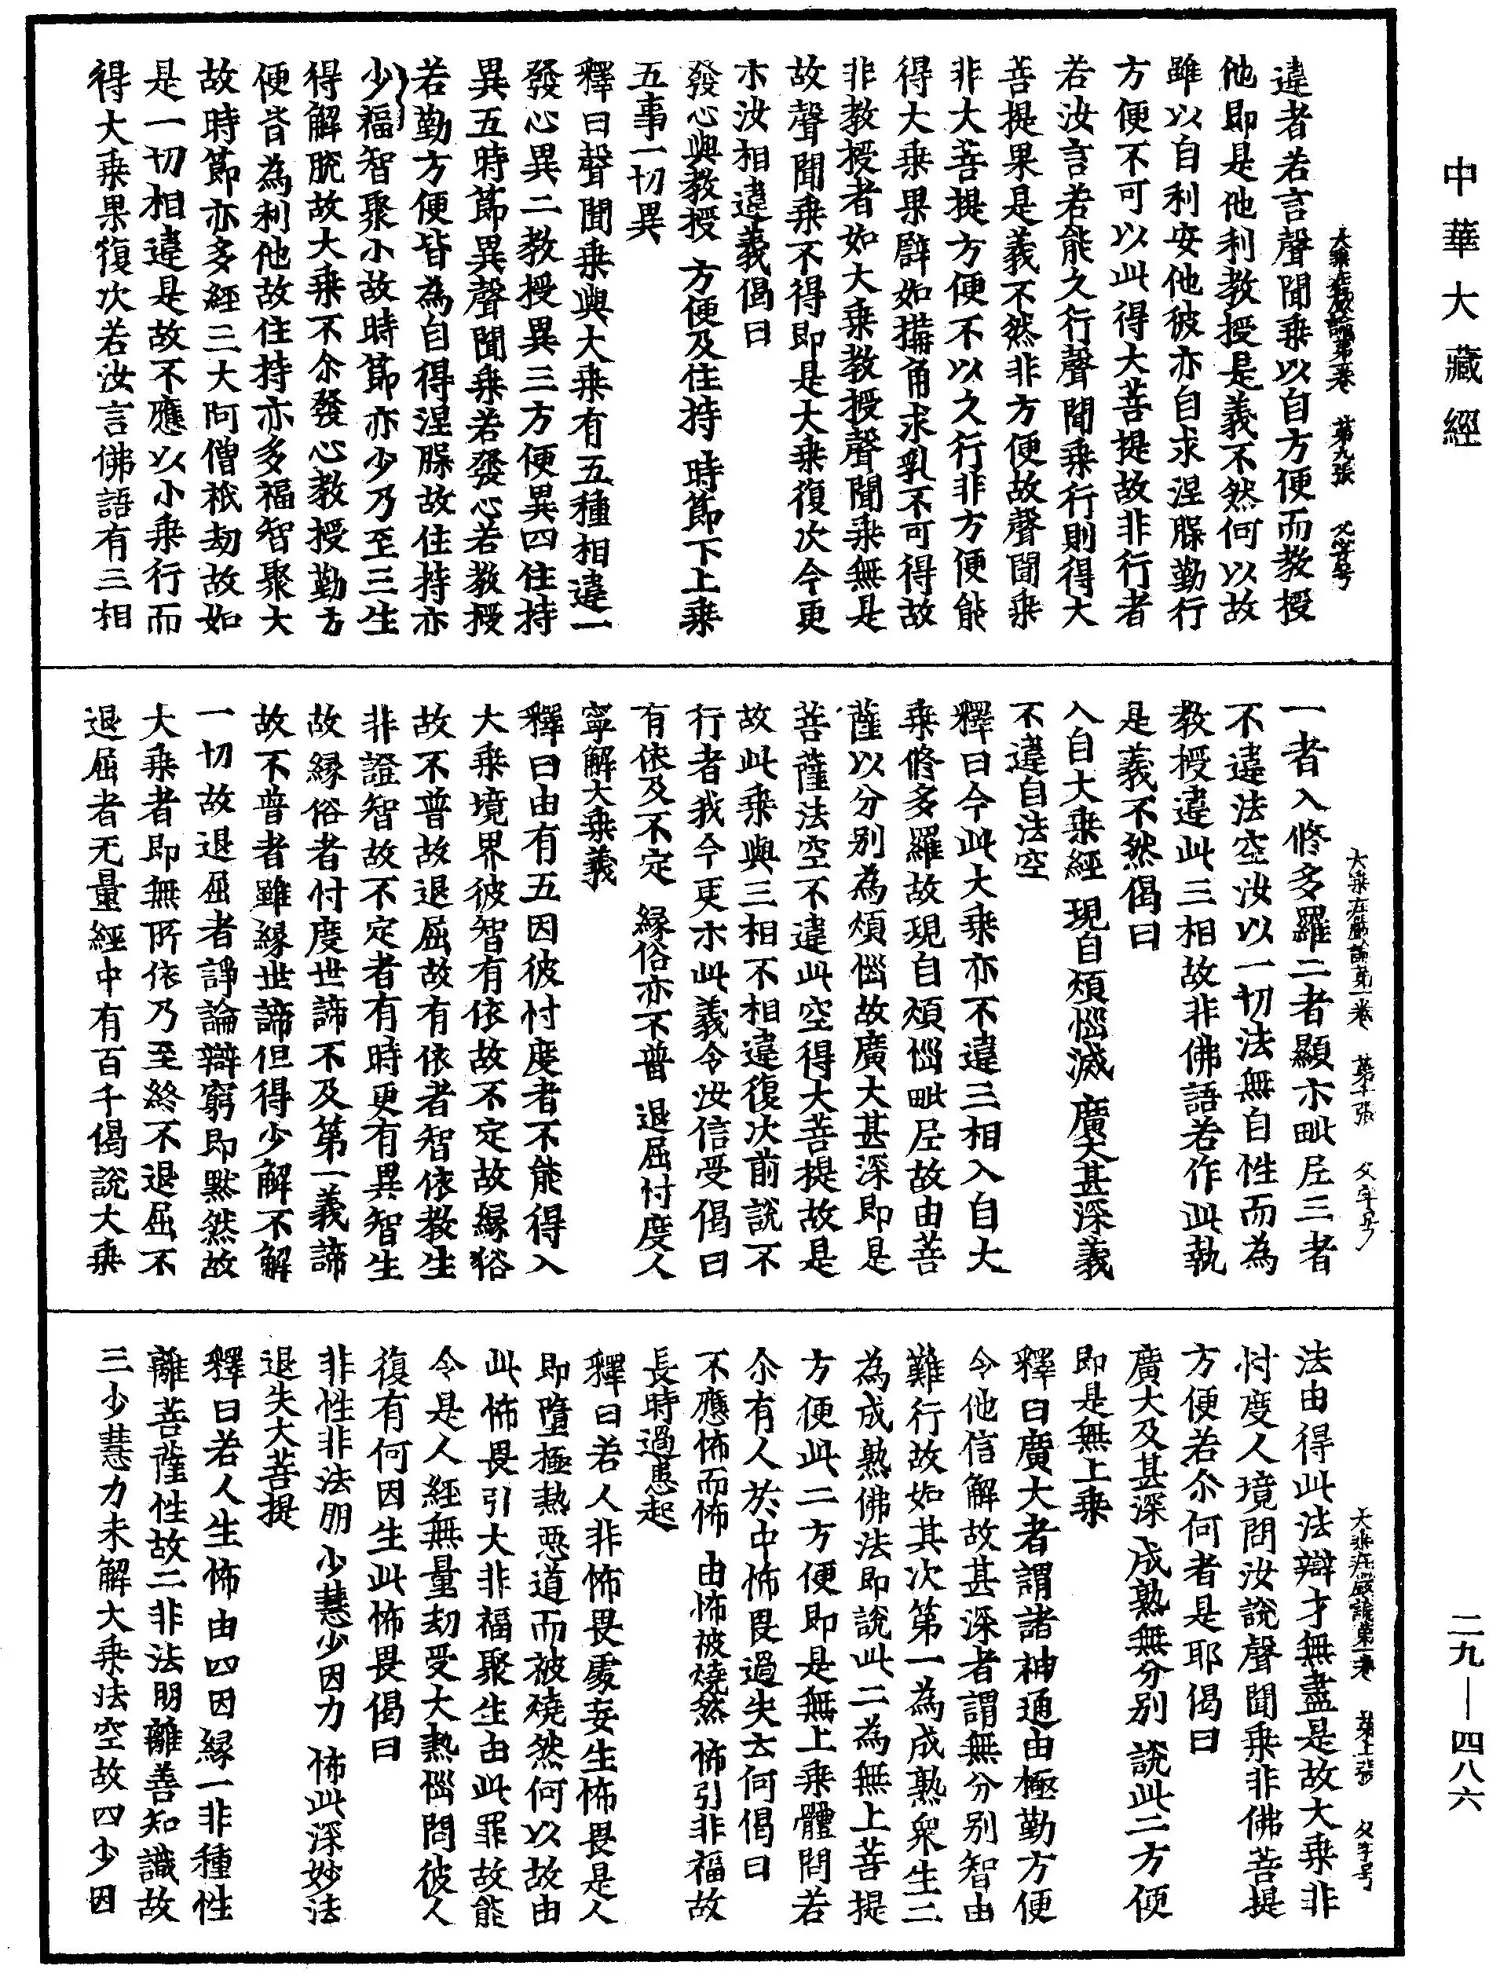 中華大藏經
大乘莊嚴論第一卷 第九張 父字号
違者若言聲聞乘以自方便而教授
他即是他利教授是義不然何以故
雖以自利安他彼亦自求涅脲勤行
方便不可以此得大菩提故非行者
若汝言若能久行聲聞乘行則得大
菩提果是義不然非方便故聲聞乘
非大菩提方便不以久行非方便能
得大乘果譬如搆角求乳不可得故
非教授者如大乘教授聲聞乘無是
故聲聞乘不得即是大乘復次今更
示汝相違義偈曰
發心與教授 方便及住持 時節下上乘
五事一切異
釋曰聲聞乘與大乘有五種相違一
發心異二教授異三方便異四住持
異五時節異聲聞乘若發心若教授
若勤方便皆為自得涅脲故住持亦
少福智聚小故時節亦少乃至三生
得解脫故大乘不尒發心教授勤方
便皆為利他故住持亦多福智聚大
故時節亦多經三大阿僧祇劫故如
是一切相違是故不應以小乘行而
得大乘果復次若汝言佛語有三相
大乘莊嚴論第一卷 第十張 父字号
一者入修多羅二者顯示毗尼三者
不違法空汝以一切法無自性而為
教授違此三相故非佛語若作此執
是義不然偈曰
入自大乘經 現自煩惱滅 廣大甚深義
不違自法空
釋曰今此大乘亦不違三相入自大
乘修多羅故現自煩惱毗尼故由菩
薩以分別為煩惱故廣大甚深即是
菩薩法空不違此空得大菩提故是
故此乘與三相不相違復次前說不
行者我今更示此義令汝信受偈曰
有依及不定 緣俗亦不普 退屈忖度人
寧解大乘義
釋曰由有五因彼忖度者不能得入
大乘境界彼智有依故不定故緣俗
故不普故退屈故有依者智依教生
非證智故不定者有時更有異智生
故緣俗者忖度世諦不及第一義諦
故不普者雖緣世諦但得少解不解
一切故退屈者諍論辯窮即默然故
大乘者即無所依乃至終不退屈不
退屈者无量經中有百千偈說大乘
大乘莊嚴論第一卷 第十一張 父字号
法由得此法辯才無盡是故大乘非
忖度人境問汝說聲聞乘非佛菩提
方便若尒何者是耶偈曰
廣大及甚深 成熟無分別 說此二方便
即是無上乘
釋曰廣大者謂諸神通由極勤方便
令他信解故甚深者謂無分別智由
難行故如其次第一為成熟眾生二
為成熟佛法即說此二為無上菩提
方便此二方便即是無上乘體問若
尒有人於中怖畏過失云何偈曰
不應怖而怖 由怖被燒然 怖引非福故
長時過患起
釋曰若人非怖畏處妄生怖畏是人
即墮極熱惡道而被燒然何以故由
此怖畏引大非福聚生由此罪故能
令是人經無量劫受大熱惱問彼人
復有何因生此怖畏偈曰
非性非法朋 少慧少因力 怖此深妙法
退失大菩提
釋曰若人生怖由四因緣一非種性
離菩薩性故二非法朋離善知識故
三少慧力未解大乘法空故四少因
二九—四八六